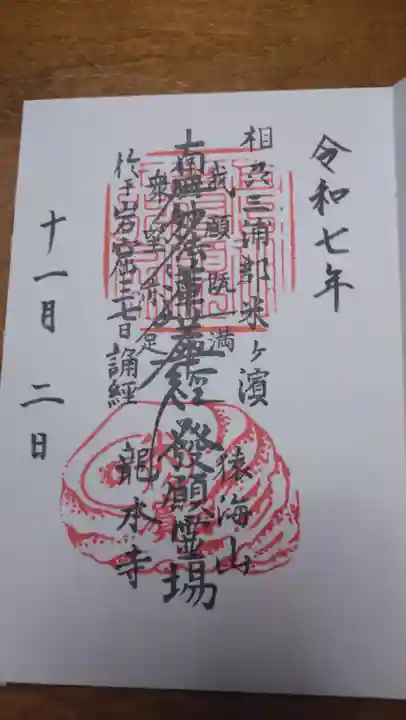 令和七年
相州三浦郡米ヶ濱
猿海山
我願既満
南無妙法蓮華経發願霊場
衆望亦足
於于岩窟三七日誦経
龍本寺
十一月二日